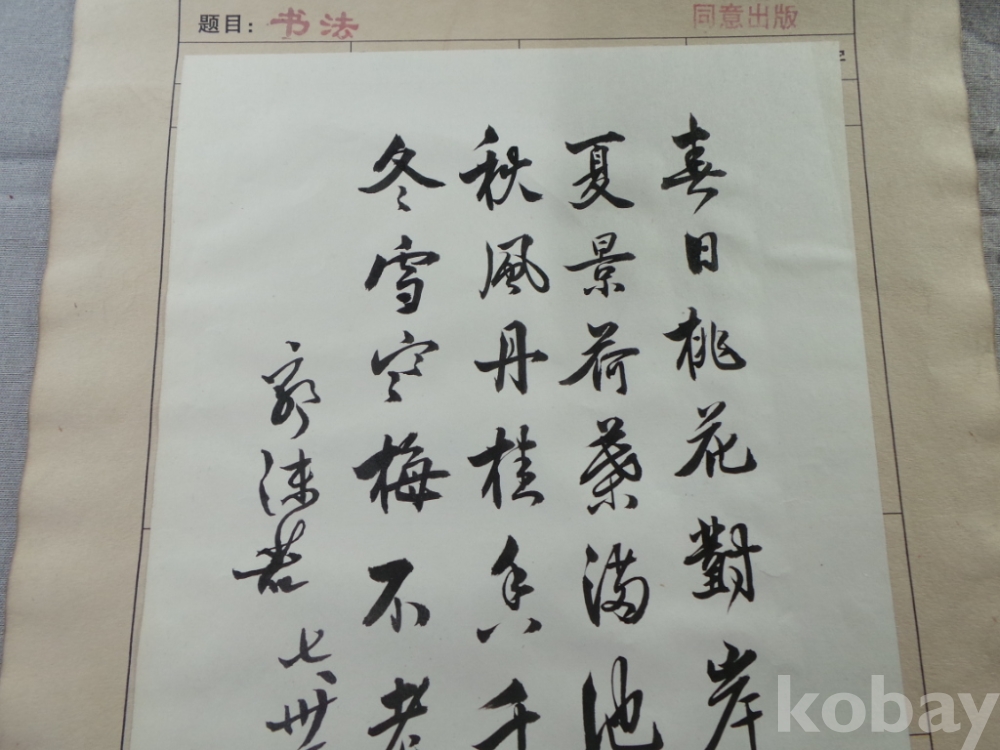 题目：书法
同意出版
春日桃花對岸
夏景荷葉满池
秋風丹桂香千
冬雪空梅不老
郭沫若 七、卅
kobay